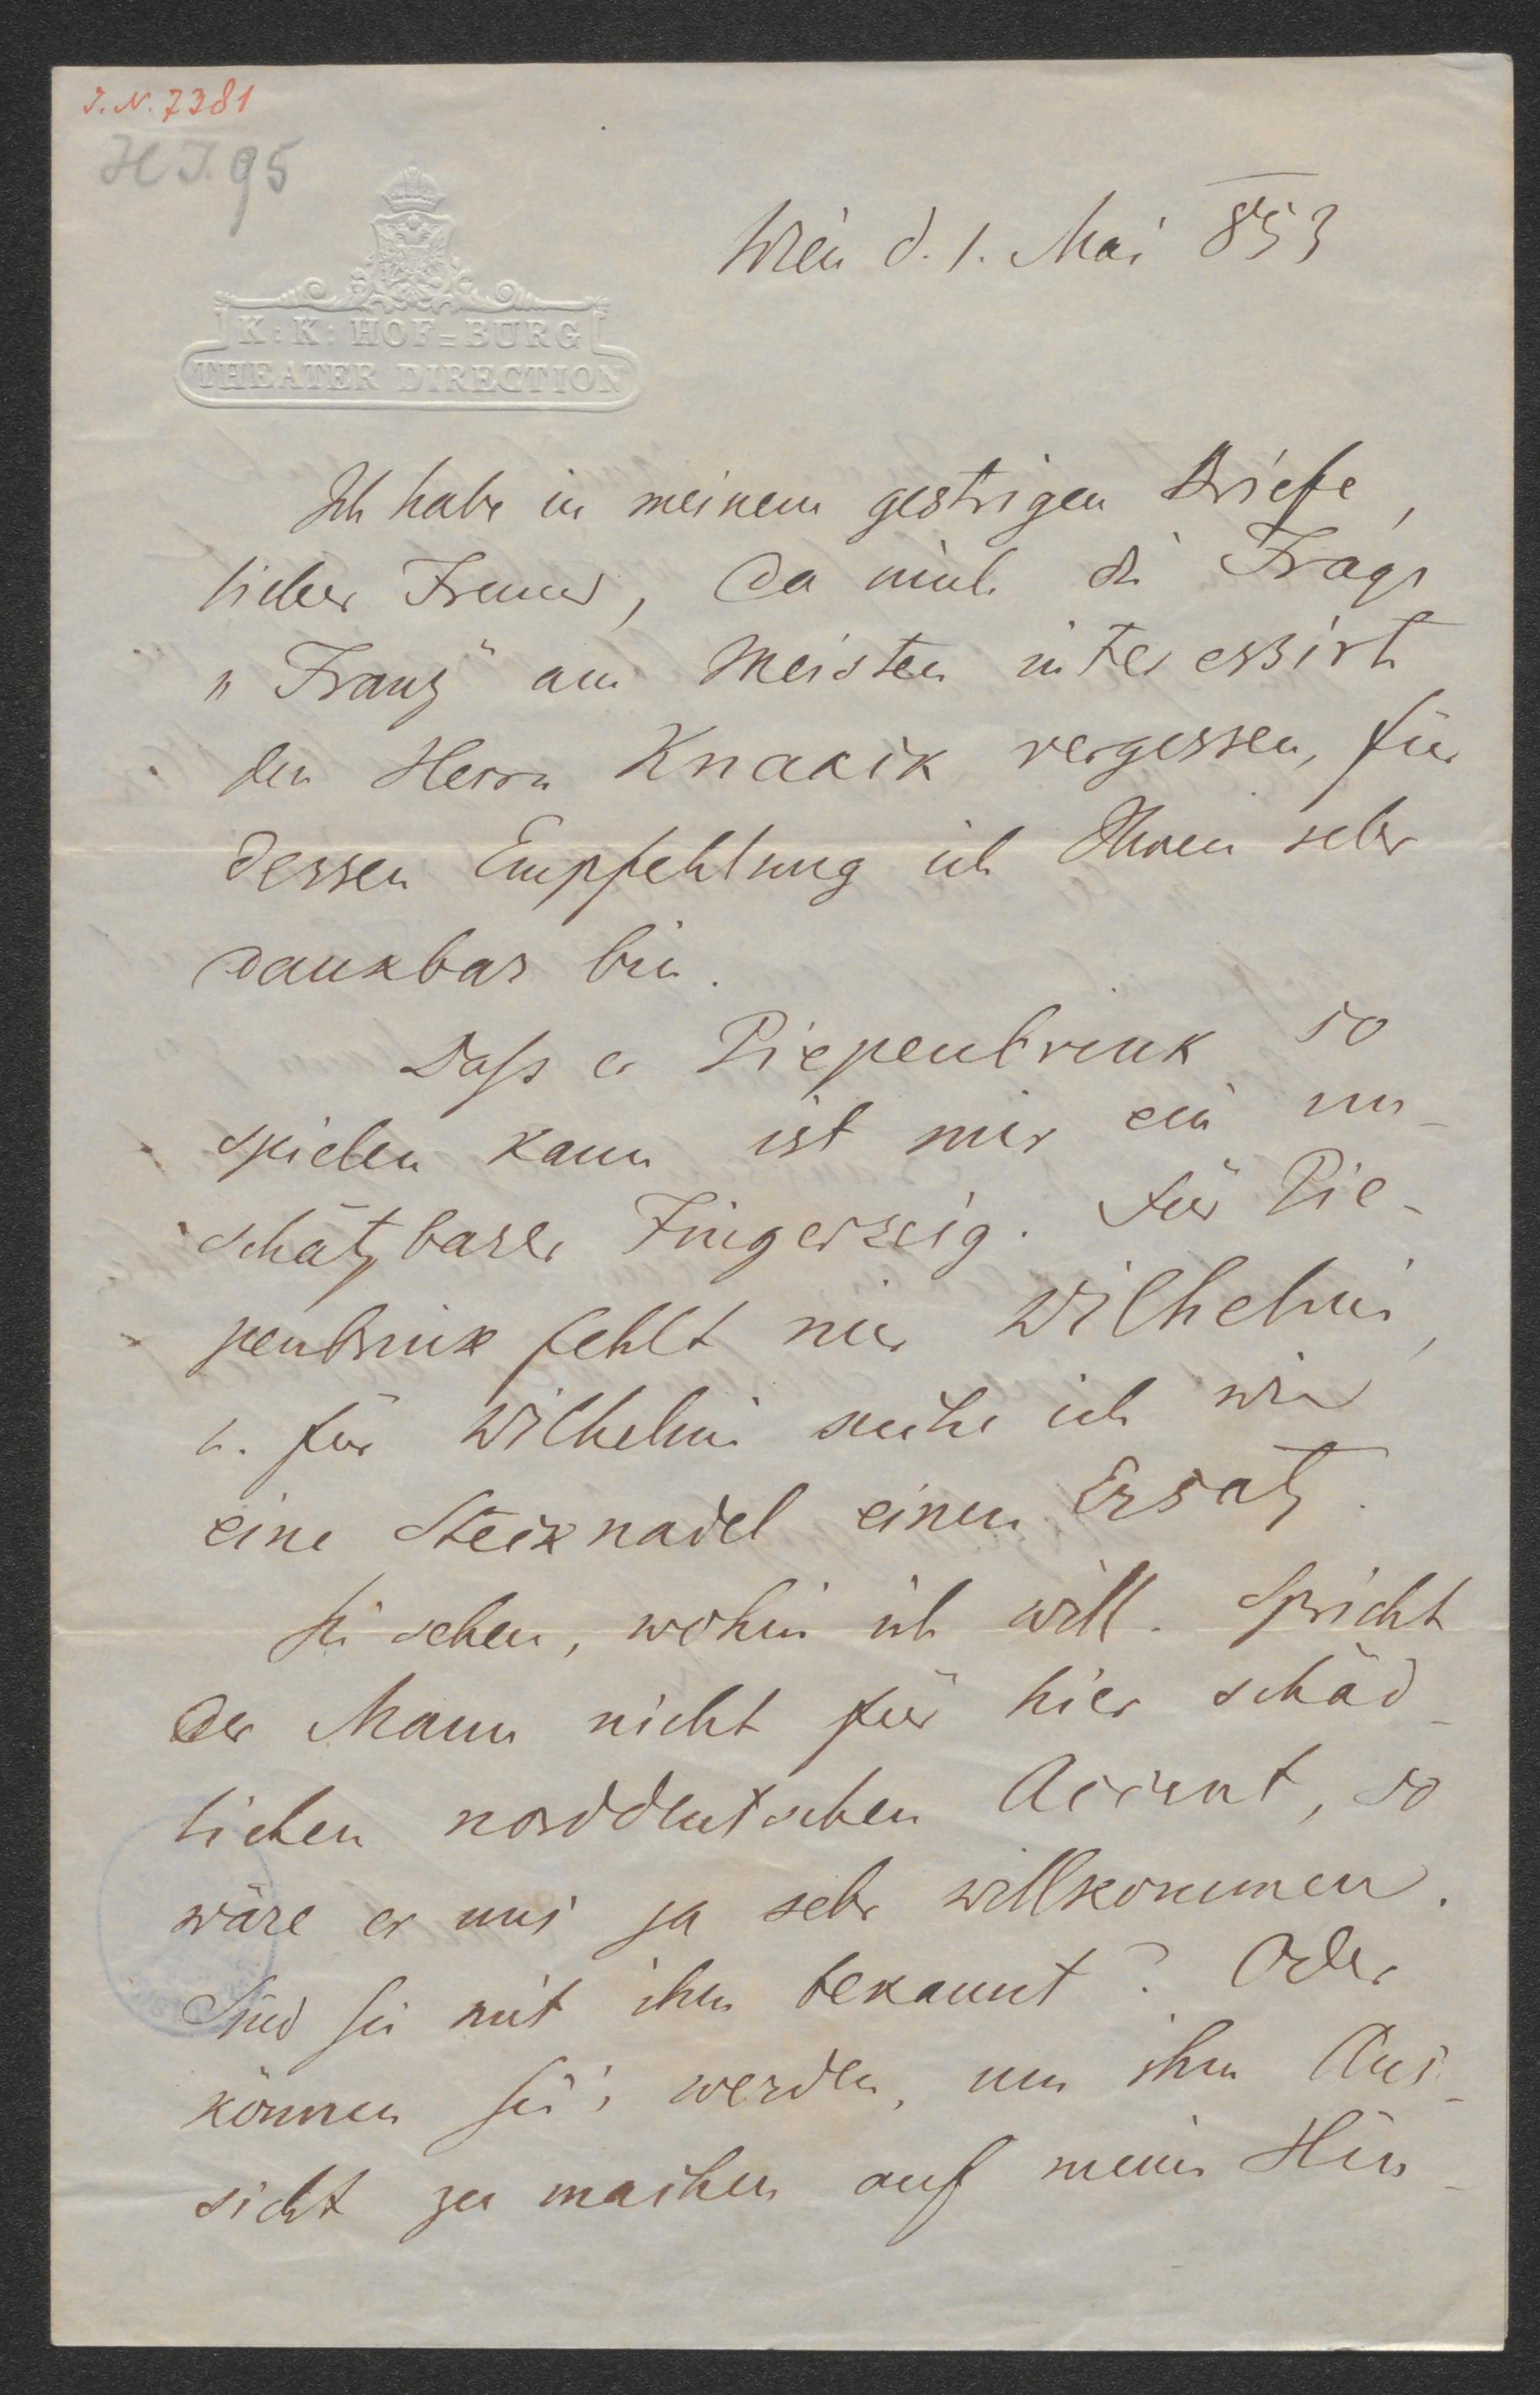 J. N. 7381
H J. 95
K: K: HOF=BURG
THEATER DIRECTION
Wien d. 1. Mai 853
Ich habe in meinem gestrigen Briefe,
lieber Freund, da mich die Frage
„Franz" am Meisten interessirt
den Herrn Knaack vergessen, für
dessen Empfehlung ich Ihnen sehr
dankbar bin.
Dass er Piepenbrink so
spielen kann ist mir ein un-
schätzbarer Fingerzeig. Für Pie-
penbrink fehlt mir Wilhelmi,
u. für Wilhelmi suche ich wie
eine Stecknadel einen Ersatz.
Sie sehen, wohin ich will. Spricht
der Mann nicht für hier schäd-
lichen norddeutschen Accent, so
wäre er uns ja sehr willkommen.
Sind Sie mit ihm bekannt? Oder
können Sie's werden, um ihm Aus-
sicht zu machen auf meine Hin-